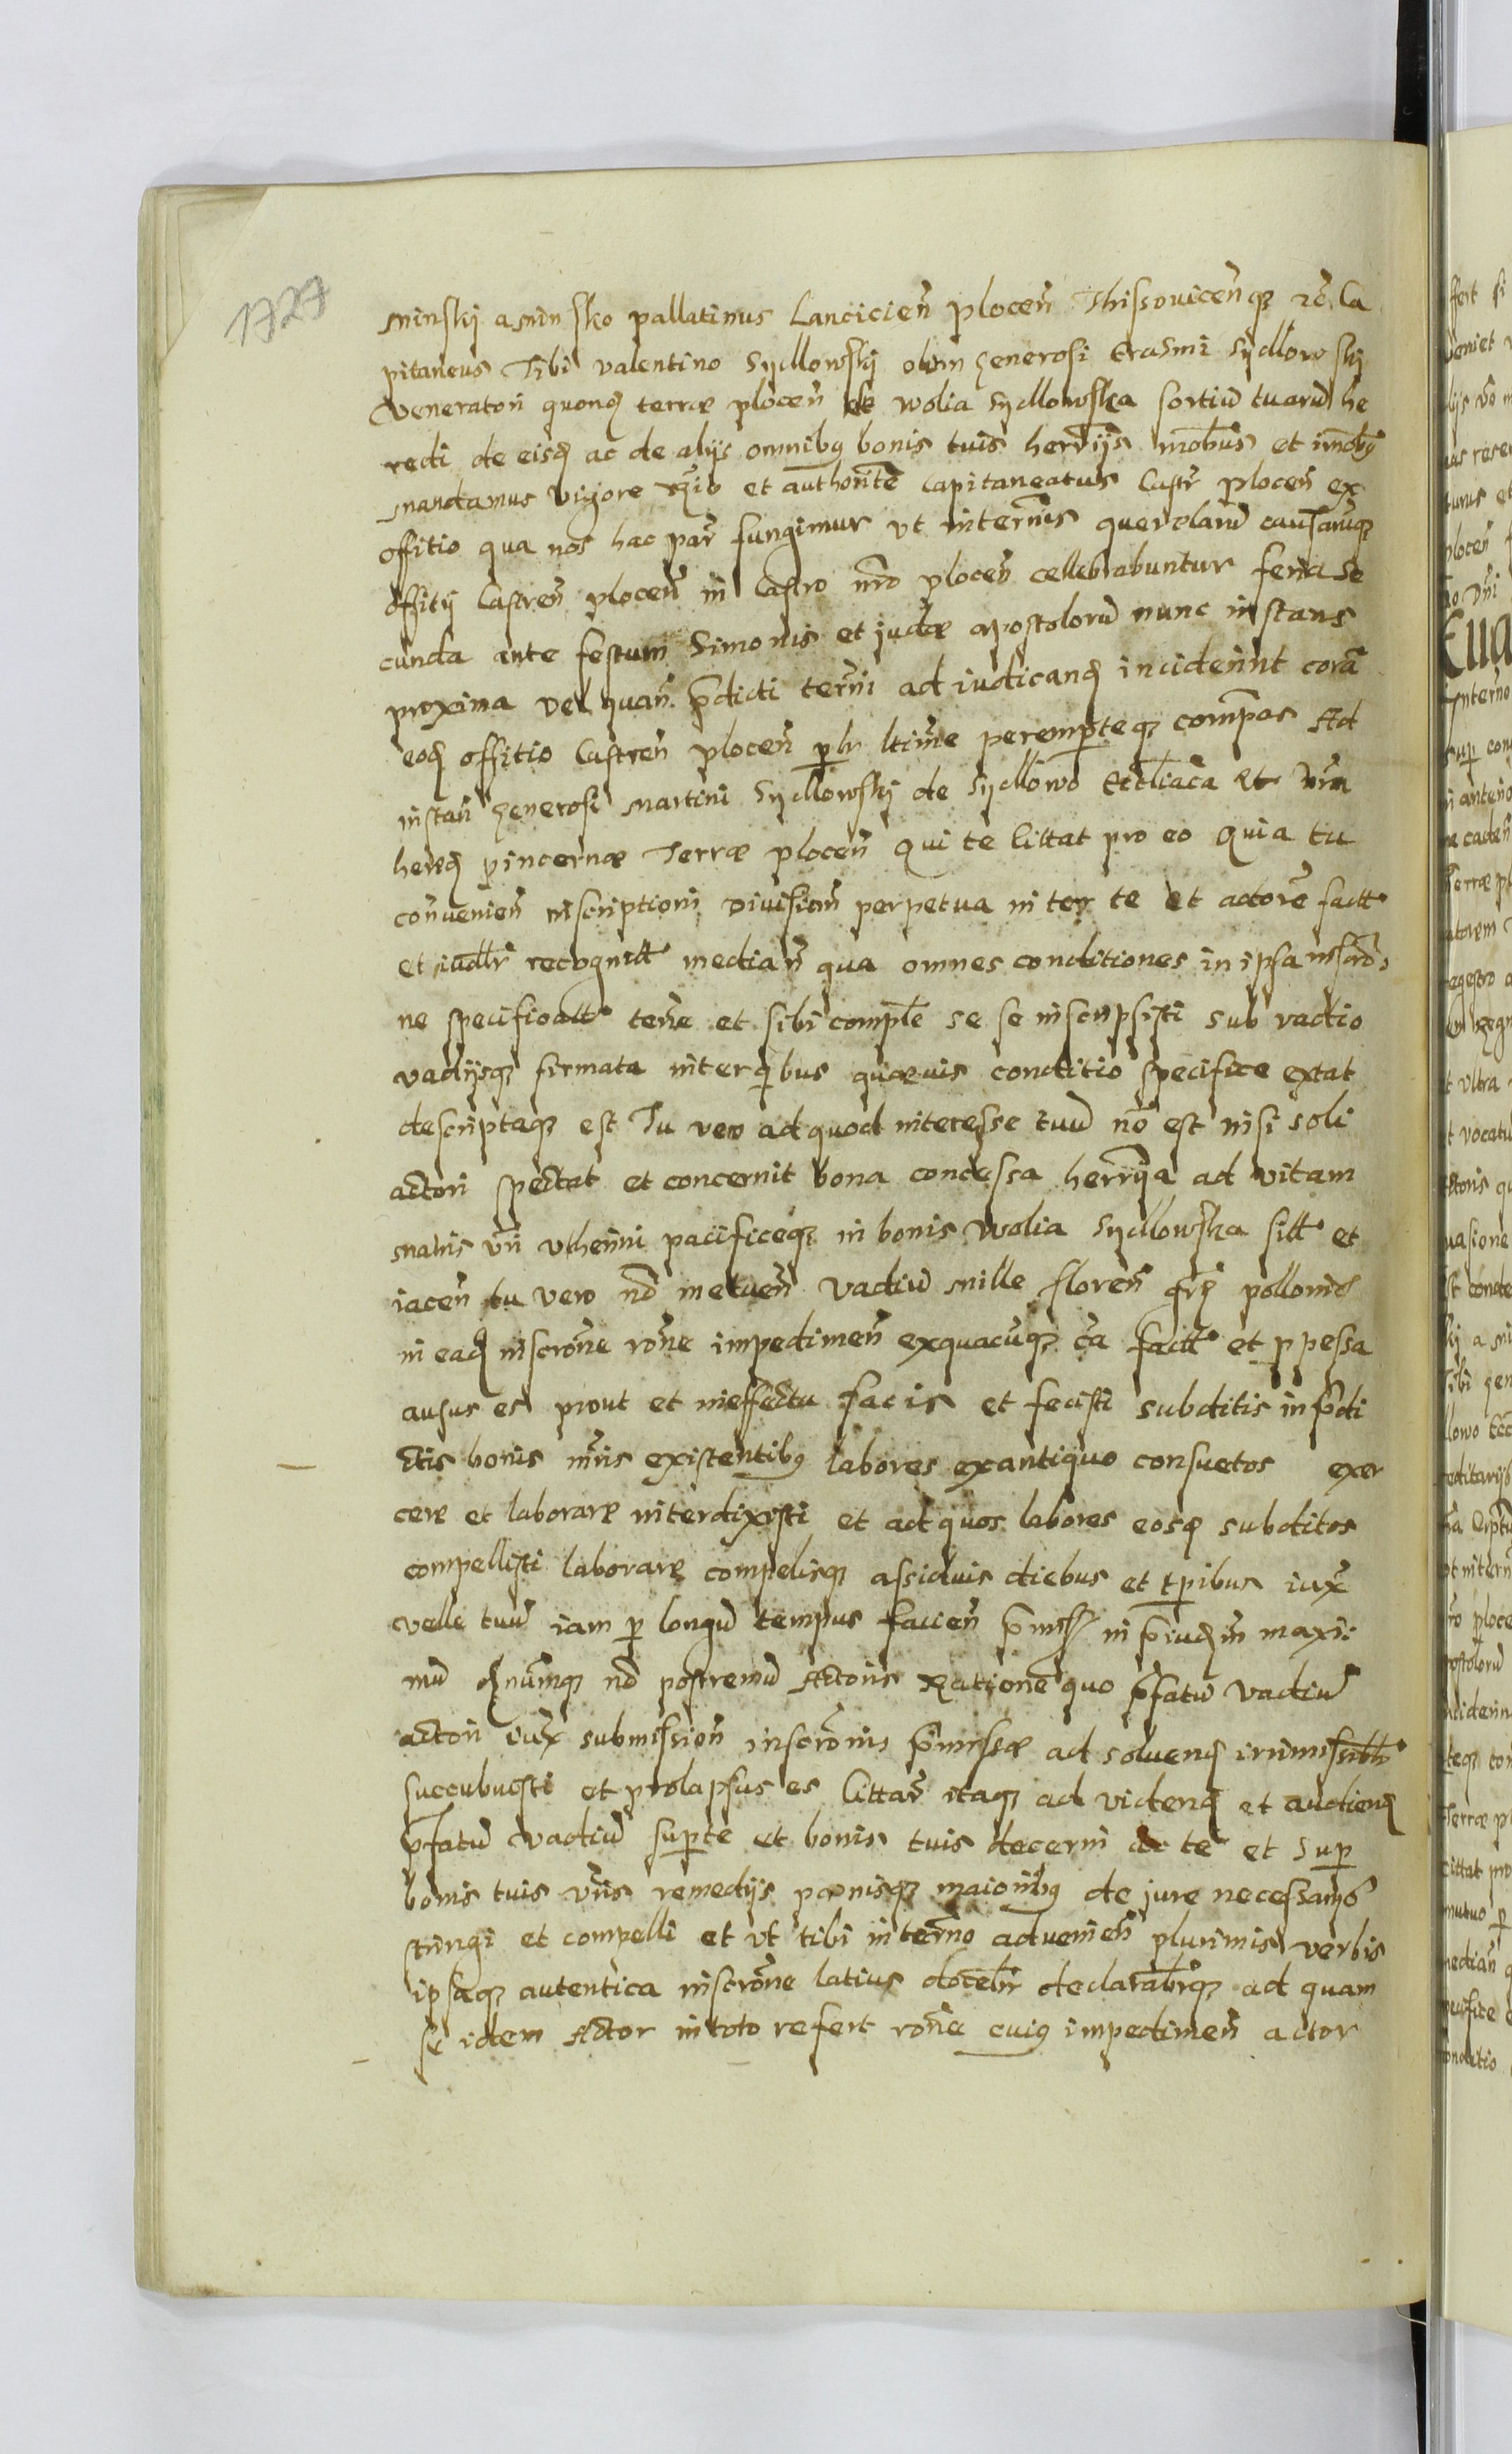 1727
minskij a minsko pallatinus Lancicien̄ plocen̄ Thissovicen̄qꝫ rc̄ Ca
pitaneus Tibi valentino Sijdlowskij olim generosi Erasmi Sijdlowskij
Veneratori quond terræ plocen̄ de wolia Sijdlowska sortiū tuarū he
redi de eisd ac de alijs omnibꝰ bonis tuis herr̄ijs mob̄us et im̄obꝰ
mandamus vigore et authoritē capitaneatus Castr̄ plocen̄ ex
offitio qua nos hac par̄ fungimur vt in ter̄mis querelarū causarūqꝫ
offitij Castren̄ plocen̄ in Castro nr̄o plocen̄ cellebrabuntur feria se
cunda ante festum Simonis et judæ apostolorū nunc instans
proxima vel quan̄ p̄dicti ter̄ni ad iudicand inciderint corā
eod offitio Castren̄ plocen̄ pl̄r ltim̄e perempteqꝫ compas Ad
instan̄ generosi martini Sijdlowskij de Sijdlowo Ecc̄liaca et
hered pincernæ Terræ plocen̄ qui te cittat pro eo Quia tu
conveniēn inscriptioni Divisiōn perpetua inter te et actorē factt
et iudlr̄ recognitt median̄ qua omnes conditiones in ipsa inscrōo
ne specificatt tenēre et sibi complē se se inscripsisti sub vadio
vadijsqꝫ firmata inter qbus quævis conditio specifice extat
descriptaqꝫ est Tu vero ad quod interesse tuū nō est nisi soli
actori spectat et concernit bona concessa herr̄ija ad vitam
matris vthenni pacificeqꝫ in bonis Wolia Sijdlowska sitt et
iacen̄ tu vero nō metuen̄ vadiū mille floren̄ pollonics
in ead inscrōne rōne impedimen̄ exquacūqꝫ cā factt et ppessa
ausus es prout et in effectu facis et fecisti subditis in p̄di
ctis bonis existentibꝰ labores ex antiquo consuetos exer
cere et laborare interdixisti et ad quos labores eosqꝫ subditos
compellisti laborare compelisqꝫ assiduis diebus et tpibus iux̄
velle tuū iam p longū tempus facien̄ p̄miss in p̄iud maxi:
mū nō postremū Actoris Rationē quo p̄fatū vadiū
actori iux̄ submission̄ inscrōnis p̄missæ ad solvend
succubuisti et prolapsus es Cittar̄ itaqꝫ ad vidend et audiend
p̄fatū vadiū super te et bonis tuis decerni ac te et sup
bonis tuis remedijs pænisqꝫ maioribꝰ de jure necessarijs
stringi et compelli et vt tibi in ter̄no advenien̄ plurimis verbis
ipsaqꝫ autentica inscrōne latius docebr̄ declarabr̄qꝫ ad quam
se idem Actor in toto refert rōne cuiꝰ impedimen̄ actor